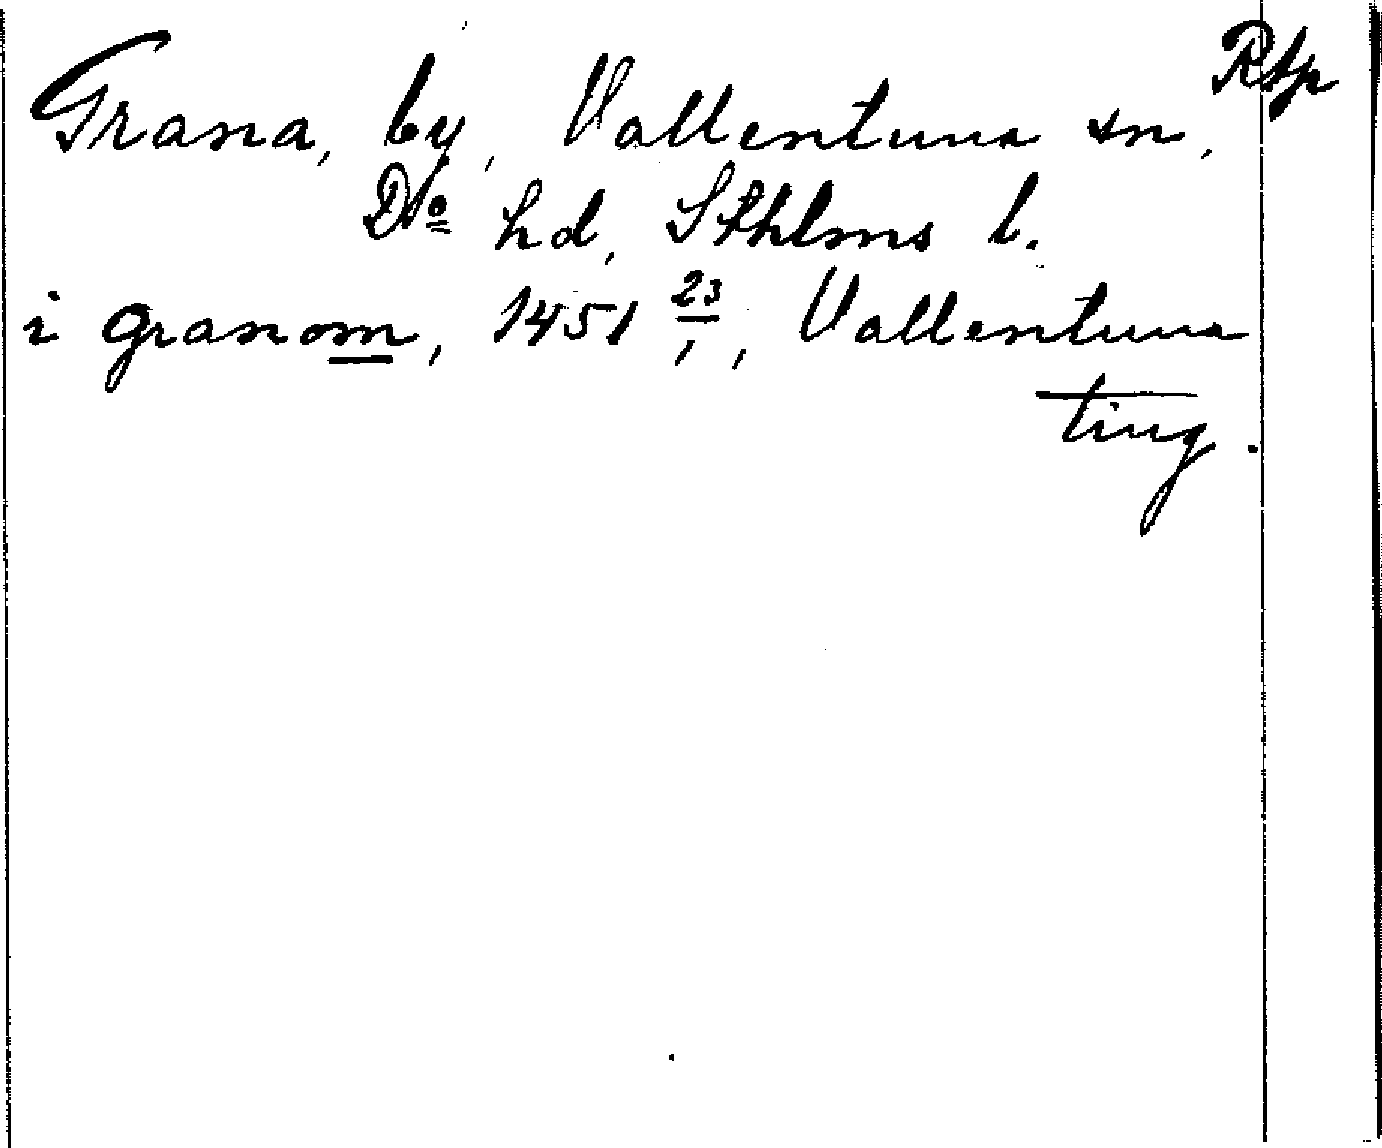 Rtp
Grana, by, Vallentuna sn,
Do hd, Sthlms l.
i granom, 1451 23/1, Vallentuna
ting.